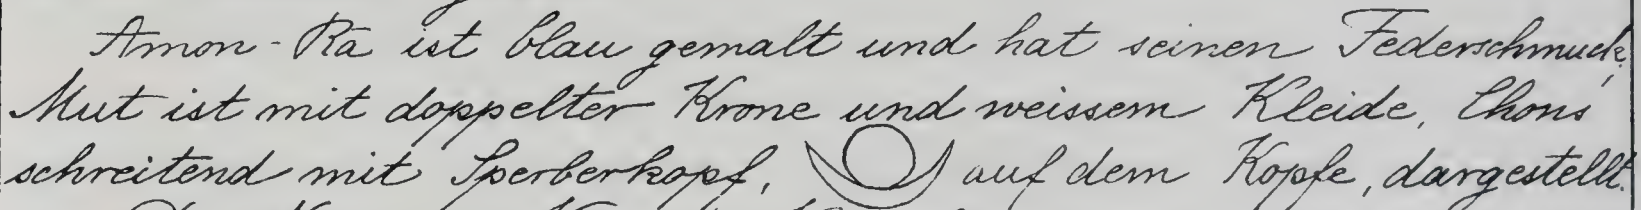 Amon-Rā ist blau gemalt und hat seinen Federschmuck,
Mut ist mit doppelter Krone und weissem Kleide, Chons
schreitend mit Sperberkopf, auf dem Kopfe, dargestellt.